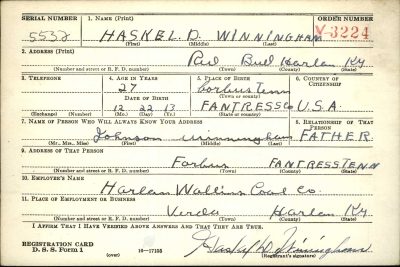 SERIAL NUMBER 1. NAME (Print) ORDER NUMBER
5532 HASKEL. D. WINNINGHAM V-3224
(First) (Middle) (Last)
2. ADDRESS (Print)
Red Bud Harlan Ky
(Number and street or R. F. D. number) (Town) (County) (State)
3. TELEPHONE 4. AGE IN YEARS 5. PLACE OF BIRTH 6. COUNTRY OF CITIZENSHIP
27 Forbus Tenn
DATE OF BIRTH (Town or county)
12 22 13 FANTRESS Co U.S.A.
(Exchange) (Number) (Mo.) (Day) (Yr.) (State or country)
7. NAME OF PERSON WHO WILL ALWAYS KNOW YOUR ADDRESS 8. RELATIONSHIP OF THAT PERSON
Johnson Winningham FATHER
(Mr., Mrs., Miss) (First) (Middle) (Last)
9. ADDRESS OF THAT PERSON
Forbus FANTRESS TENN
(Number and street or R. F. D. number) (Town) (County) (State)
10. EMPLOYER'S NAME
Harlan Wallins Coal Co.
11. PLACE OF EMPLOYMENT OR BUSINESS
Verda Harlan Ky.
(Number and street or R. F. D. number) (Town) (County) (State)
I AFFIRM THAT I HAVE VERIFIED ABOVE ANSWERS AND THAT THEY ARE TRUE.
REGISTRATION CARD
D. S. S. Form 1 16—17105 Haskel D Winningham
(over) (Registrant's signature)